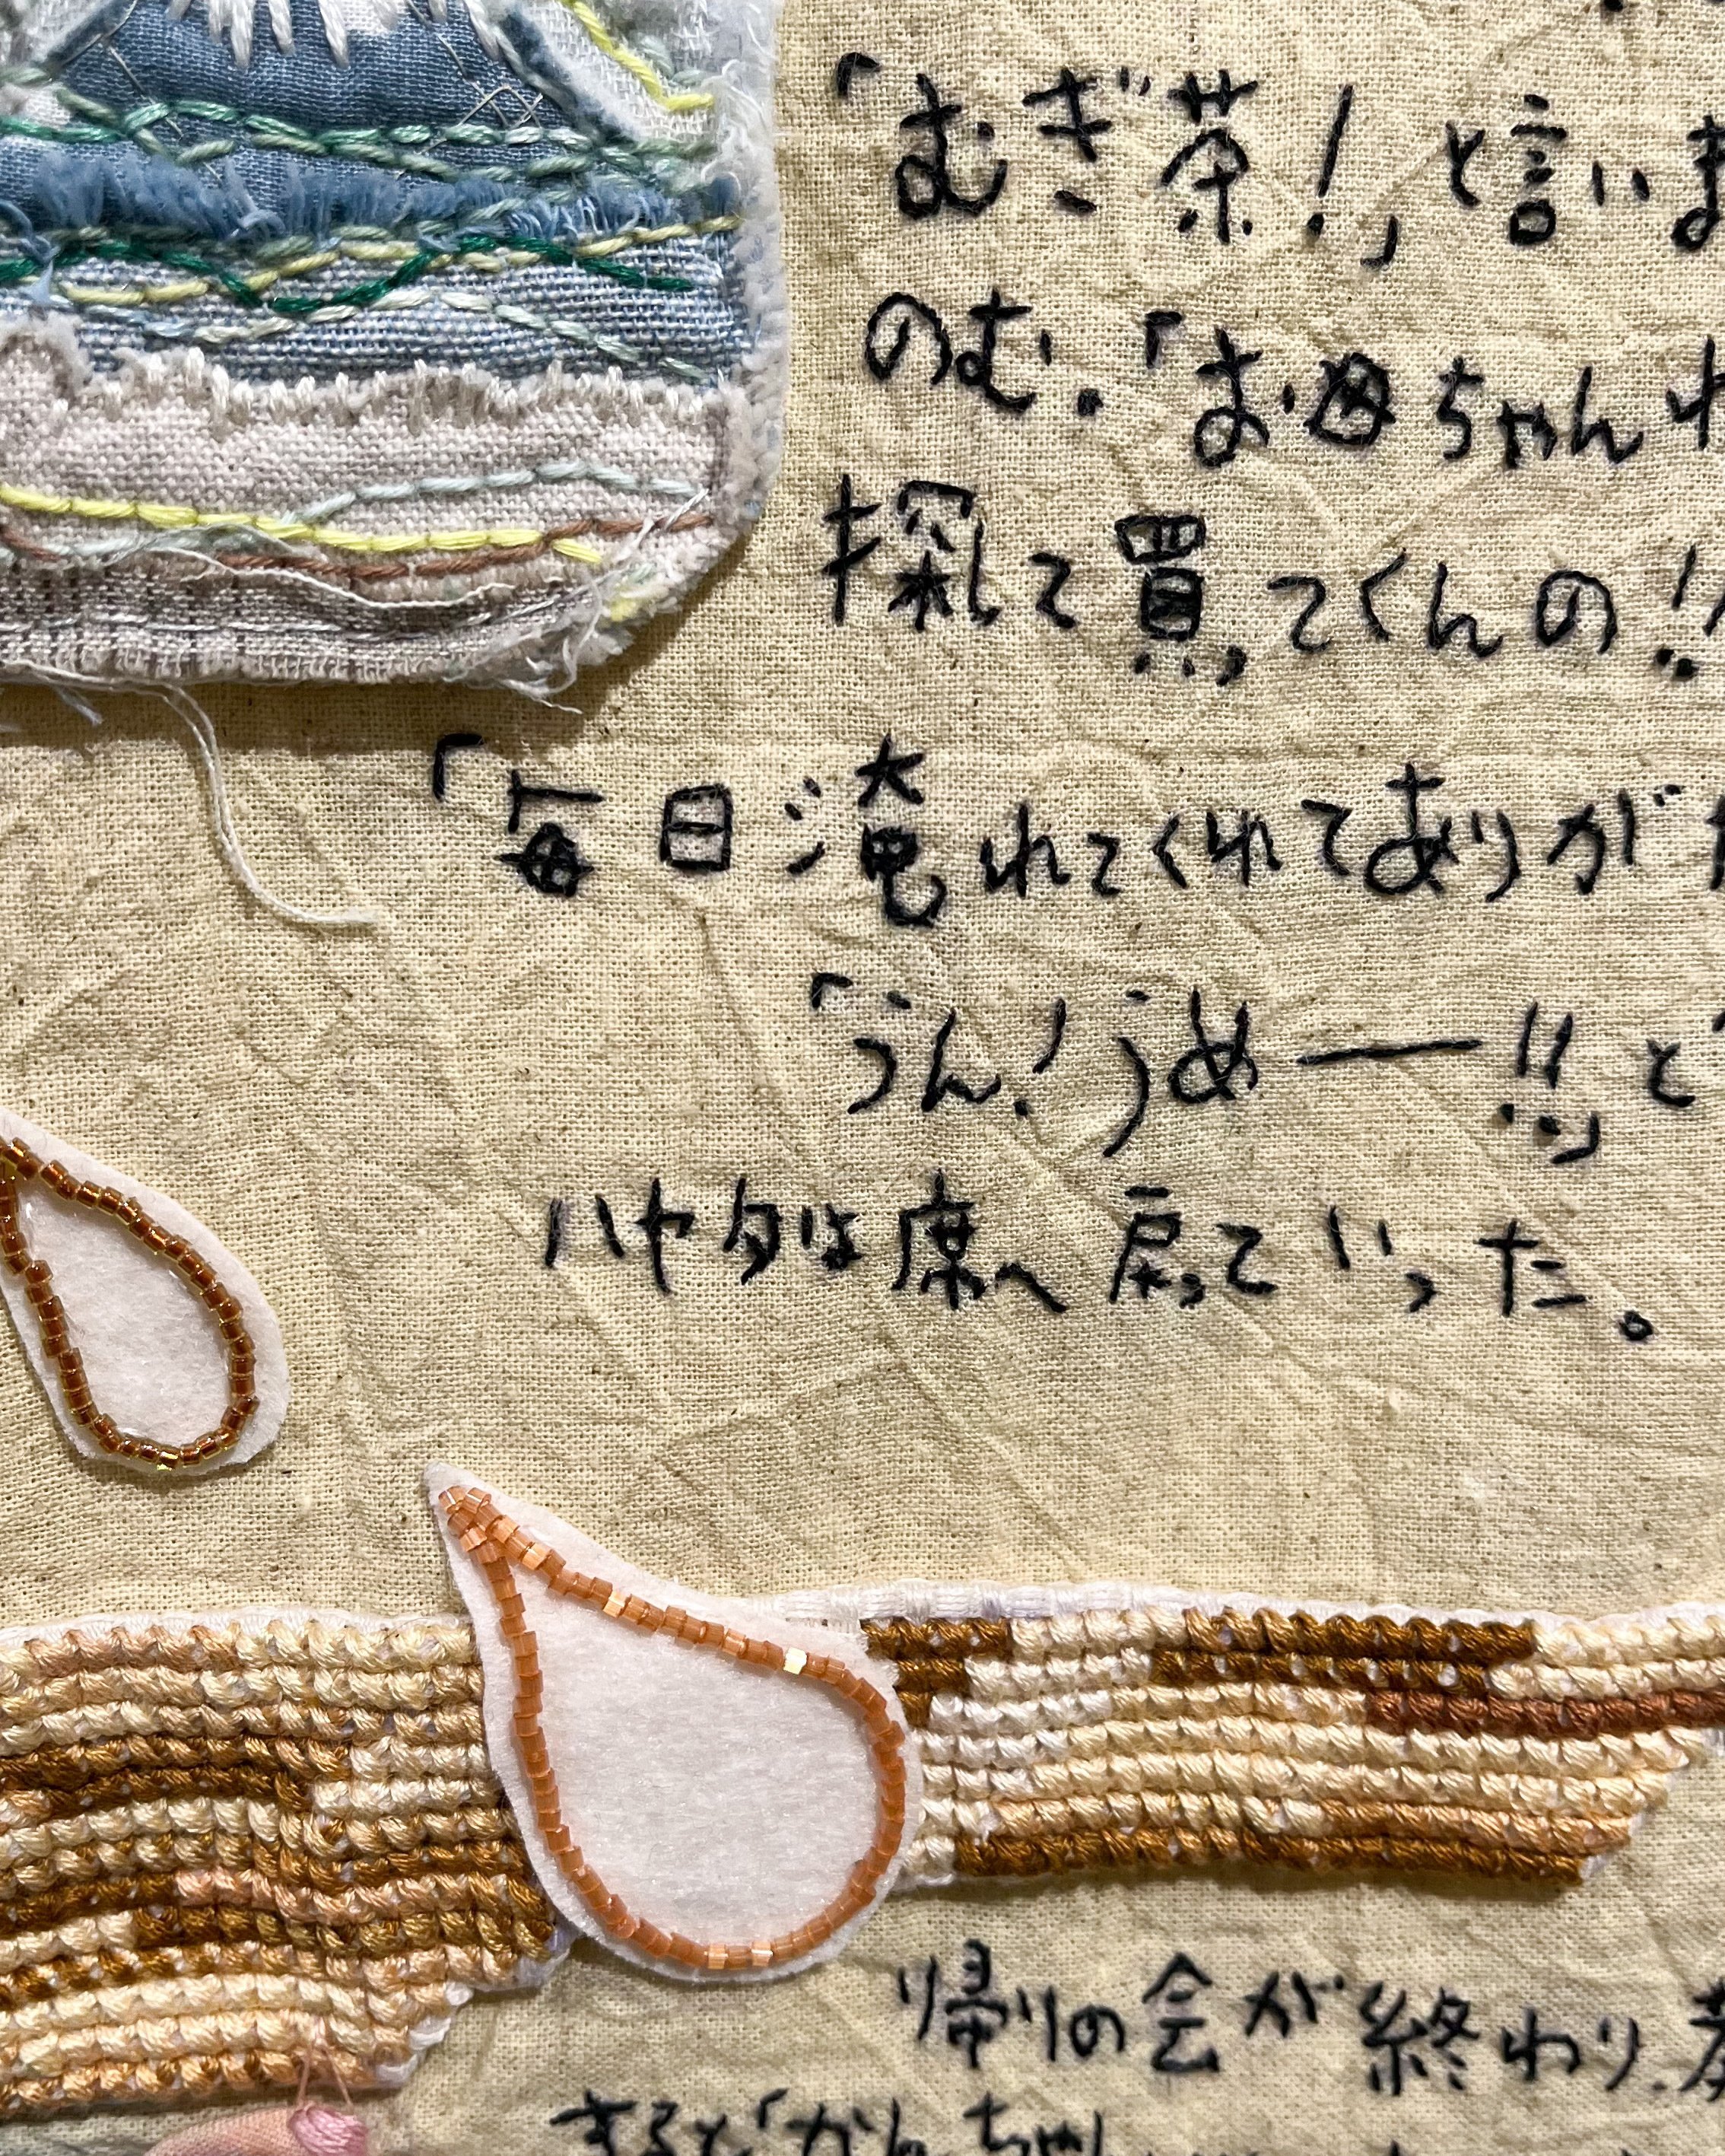 「むぎ茶！」と言いま
のむ。「お母ちゃん
探して買ってくんの！！
「毎日淹れてくれてありが
「うん！うめー！！」と
ハヤタは席へ戻っていった。
帰りの会が終わり、
すると「かんちゃん